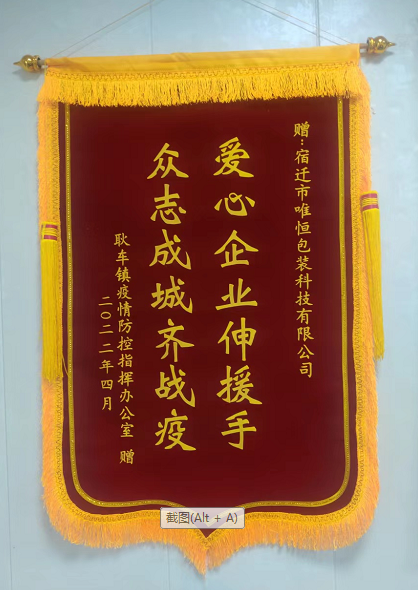 赠:宿迁市唯恒包装科技有限公司
爱心企业伸援手
众志成城齐战疫
耿车镇疫情防控指挥办公室 赠
二〇二二年四月
截图(Alt + A)